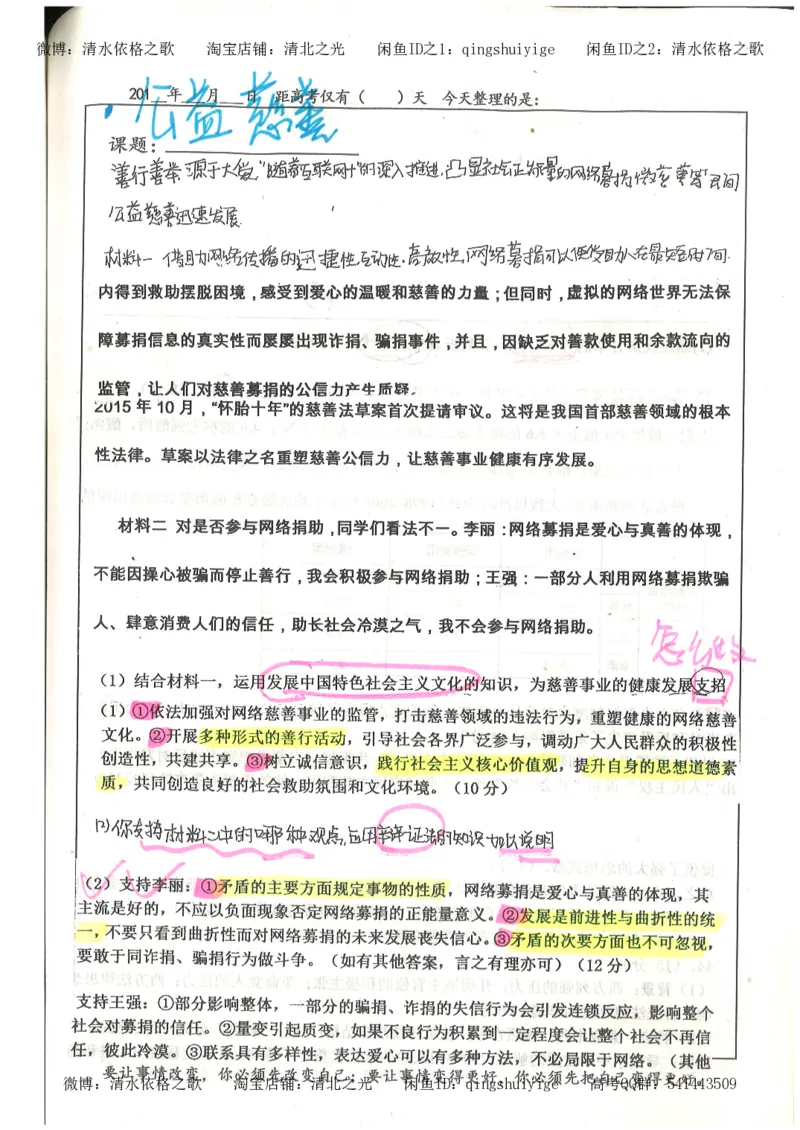 微博：清水依格之歌 淘宝店铺：清北之光 闲鱼ID之1：qingshuiyige 闲鱼ID之2：清水依格之歌
201 年 月 日 距高考仅有（ ）天 今天整理的是：
公益慈善
课题：
善行善举源于大爱，随着"互联网+"的深入推进，凸显社会正能量的网络募捐、微慈善等民间
公益慈善迅速发展
材料一 借助网络传播的迅捷性、互动性、高效性，网络募捐可以使受助人在最短时间
内得到救助摆脱困境，感受到爱心的温暖和慈善的力量；但同时，虚拟的网络世界无法保
障募捐信息的真实性而屡屡出现诈捐、骗捐事件，并且，因缺乏对善款使用和余款流向的
监管，让人们对慈善募捐的公信力产生质疑。
2015 年 10 月，“怀胎十年”的慈善法草案首次提请审议。这将是我国首部慈善领域的根本
性法律。草案以法律之名重塑慈善公信力，让慈善事业健康有序发展。
材料二 对是否参与网络捐助，同学们看法不一。李丽：网络募捐是爱心与真善的体现，
不能因操心被骗而停止善行，我会积极参与网络捐助；王强：一部分人利用网络募捐欺骗
人、肆意消费人们的信任，助长社会冷漠之气，我不会参与网络捐助。
怎么做
（1）结合材料一，运用发展中国特色社会主义文化的知识，为慈善事业的健康发展支招
（1）①依法加强对网络慈善事业的监管，打击慈善领域的违法行为，重塑健康的网络慈善
文化。②开展多种形式的善行活动，引导社会各界广泛参与，调动广大人民群众的积极性
创造性，共建共享。③树立诚信意识，践行社会主义核心价值观，提升自身的思想道德素
质，共同创造良好的社会救助氛围和文化环境。（10 分）
(2)你支持材料二中的哪种观点，运用辩证法的知识加以说明
（2）支持李丽：①矛盾的主要方面规定事物的性质，网络募捐是爱心与真善的体现，其
主流是好的，不应以负面现象否定网络募捐的正能量意义。②发展是前进性与曲折性的统
一，不要只看到曲折性而对网络募捐的未来发展丧失信心。③矛盾的次要方面也不可忽视，
要敢于同诈捐、骗捐行为做斗争。（如有其他答案，言之有理亦可）（12 分）
支持王强：①部分影响整体，一部分的骗捐、诈捐的失信行为会引发连锁反应，影响整个
社会对募捐的信任。②量变引起质变，如果不良行为积累到一定程度会让整个社会不再信
任，彼此冷漠。③联系具有多样性，表达爱心可以有多种方法，不必局限于网络。（其他
要让事情改变，你必须先改变自己；要让事情变得更好，你必须先把自己变得更好。
微博：清水依格之歌 淘宝店铺：清北之光 闲鱼ID：qingshuiyige 高考QQ群：541443509